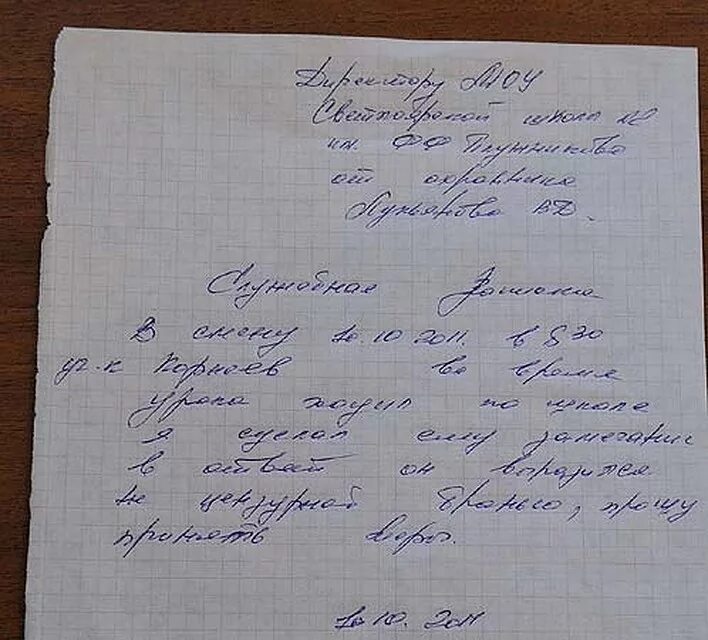 Директору МОУ
Светлоярской школы №2
им. ФФ Плужникова
от охранника
Лукьянова ВД.
Служебная Записка
В смену 10.10 2011. в 8 30
уч-к Корнеев во время
урока ходил по школе
я сделал ему замечание
в ответ он выразился
не цензурной бранью, прошу
принять меры.
10 10. 2011